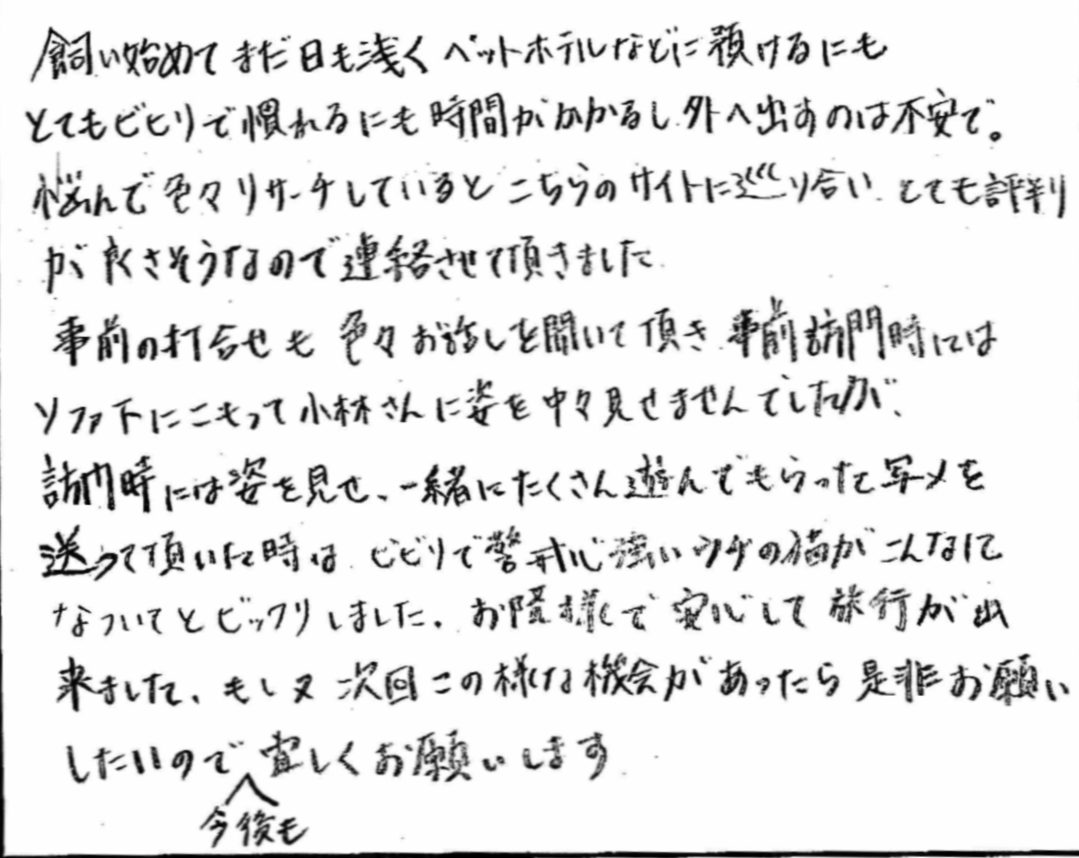 飼い始めてまだ日も浅くペットホテルなどに預けるにも
とてもビビリで慣れるにも時間がかかるし外へ出すのは不安で。
悩んで色々リサーチしているとこちらのサイトに巡り合い、とても評判
が良さそうなので連絡させて頂きました
事前の打合せも色々お話しを聞いて頂き事前訪問時には
ソファ下にこもって小林さんに姿を中々見せませんでしたが、
訪問時には姿を見せ、一緒にたくさん遊んでもらった写メを
送って頂いた時は、ビビリで警戒心強いウチの猫がこんなに
なついてとビックリしました。お陰様で安心して旅行が出
来ました、もし又次回この様な機会があったら是非お願い
したいので宜しくお願いします
今後も